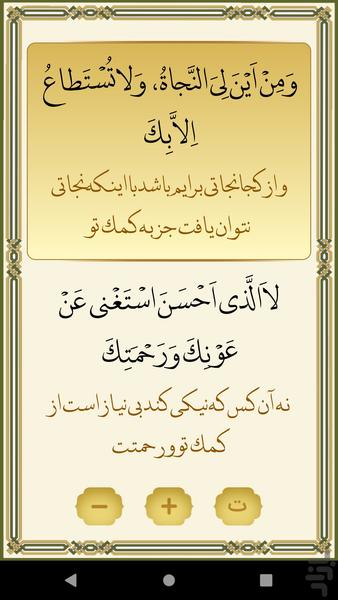 وَمِنْ اَيْنَ لِىَ النَّجاةُ، وَلا تُسْتَطاعُ
اِلاَّ بِكَ
و از كجا نجاتى برايم باشد با اينكه نجاتى
نتوان يافت جز به كمك تو
لاَ الَّذى اَحْسَنَ اسْتَغْنى عَنْ
عَوْنِكَ وَ رَحْمَتِكَ
نه آن كس كه نيكى كند بى نياز است از
كمك تو و رحمتت
− + ت
بازار